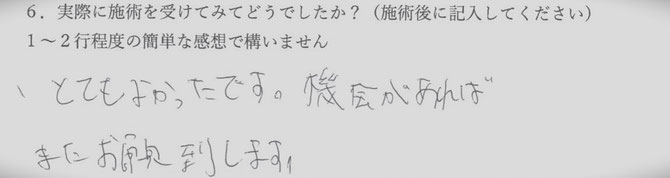 6．実際に施術を受けてみてどうでしたか？（施術後に記入してください）
1～2行程度の簡単な感想で構いません
、とてもよかったです。機会があれば
またお願到します。